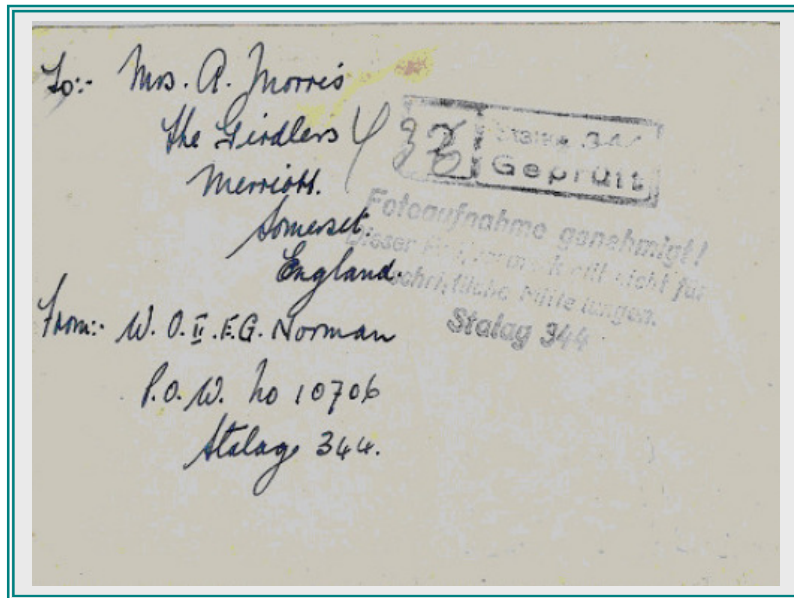 To:- Mrs. A. Morris
The Girdlers
Merriott.
Somerset
England.
From:- W. O. II. F.G. Norman
P.O.W. no 10706
Stalag 344.
32
Stalag 344
Geprüft
Fotoaufnahme genehmigt!
Dieser gilt nicht für
schriftliche Mitteilungen.
Stalag 344